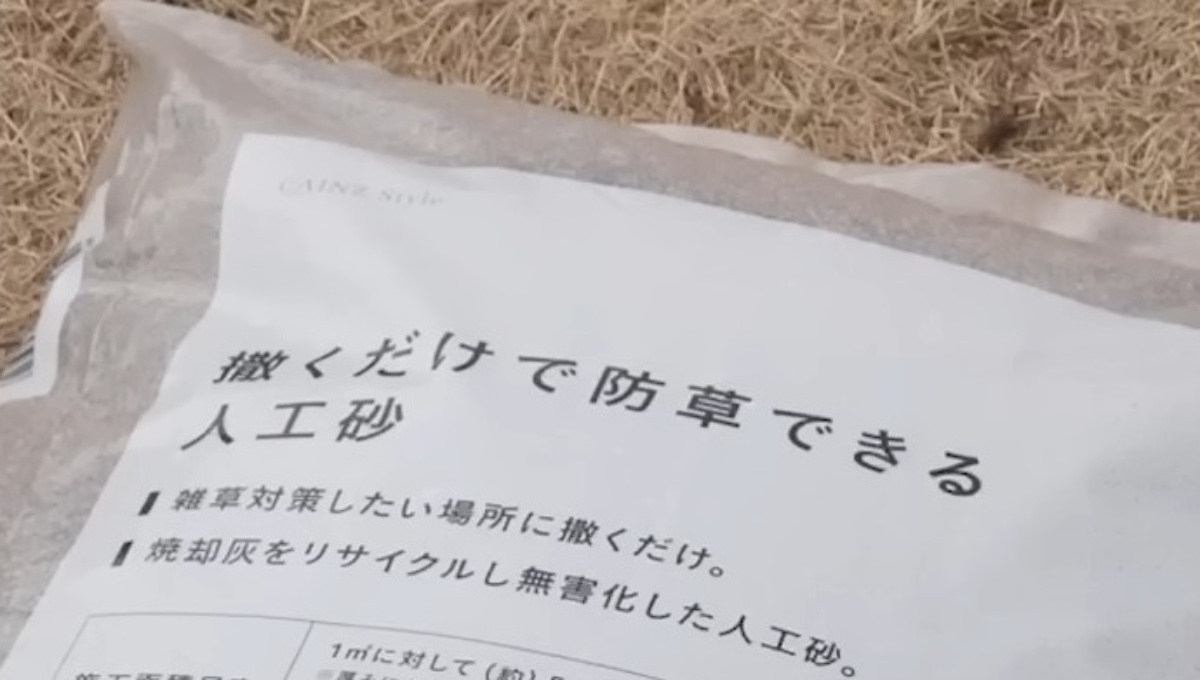 CAINZ Style
撒くだけで防草できる
人工砂
雑草対策したい場所に撒くだけ。
焼却灰をリサイクルし無害化した人工砂。
1㎡に対して(約)